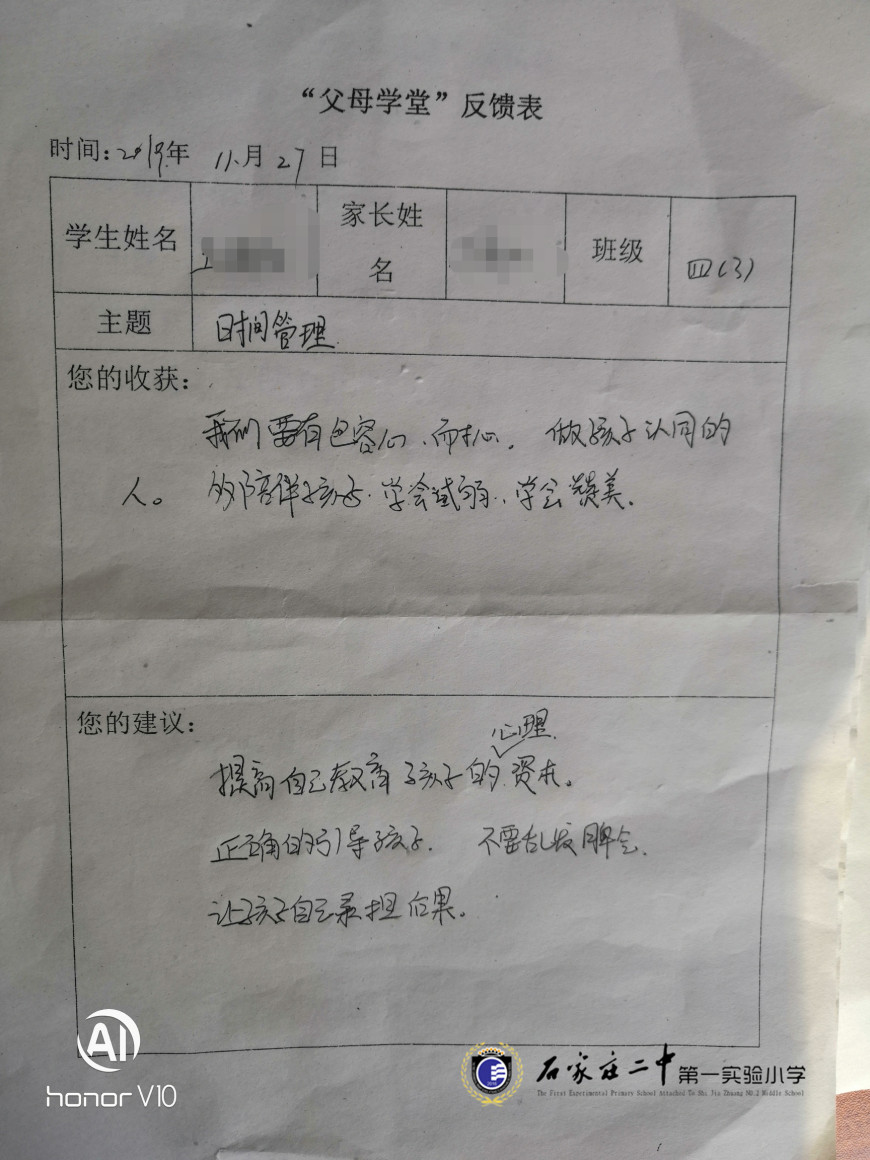 “父母学堂”反馈表
时间:2019年 11月27日
学生姓名 家长姓名 班级 四(3)
主题 时间管理
您的收获:
我们要有包容心、耐心。做孩子认同的
人。多陪伴孩子.学会试弱.学会赞美.
您的建议:
心理
提高自己教育孩子的资本。
正确的引导孩子.不要乱发脾气.
让孩子自己承担后果。
AI
honor V10
石家庄二中第一实验小学
The First Experimental Primary School Attached To Shi Jia Zhuang NO.2 Middle School